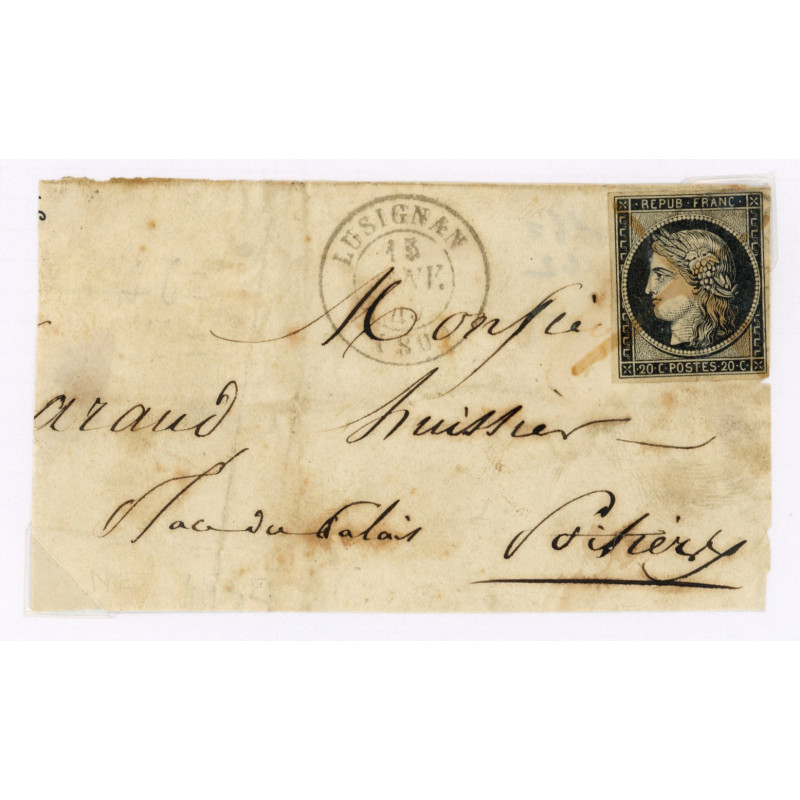 LUSIGNAN
15
(80)
REPUB. FRANC.
20·C·POSTES·20·C·
Monsie
araud huissier
Place du Palais Poitiers